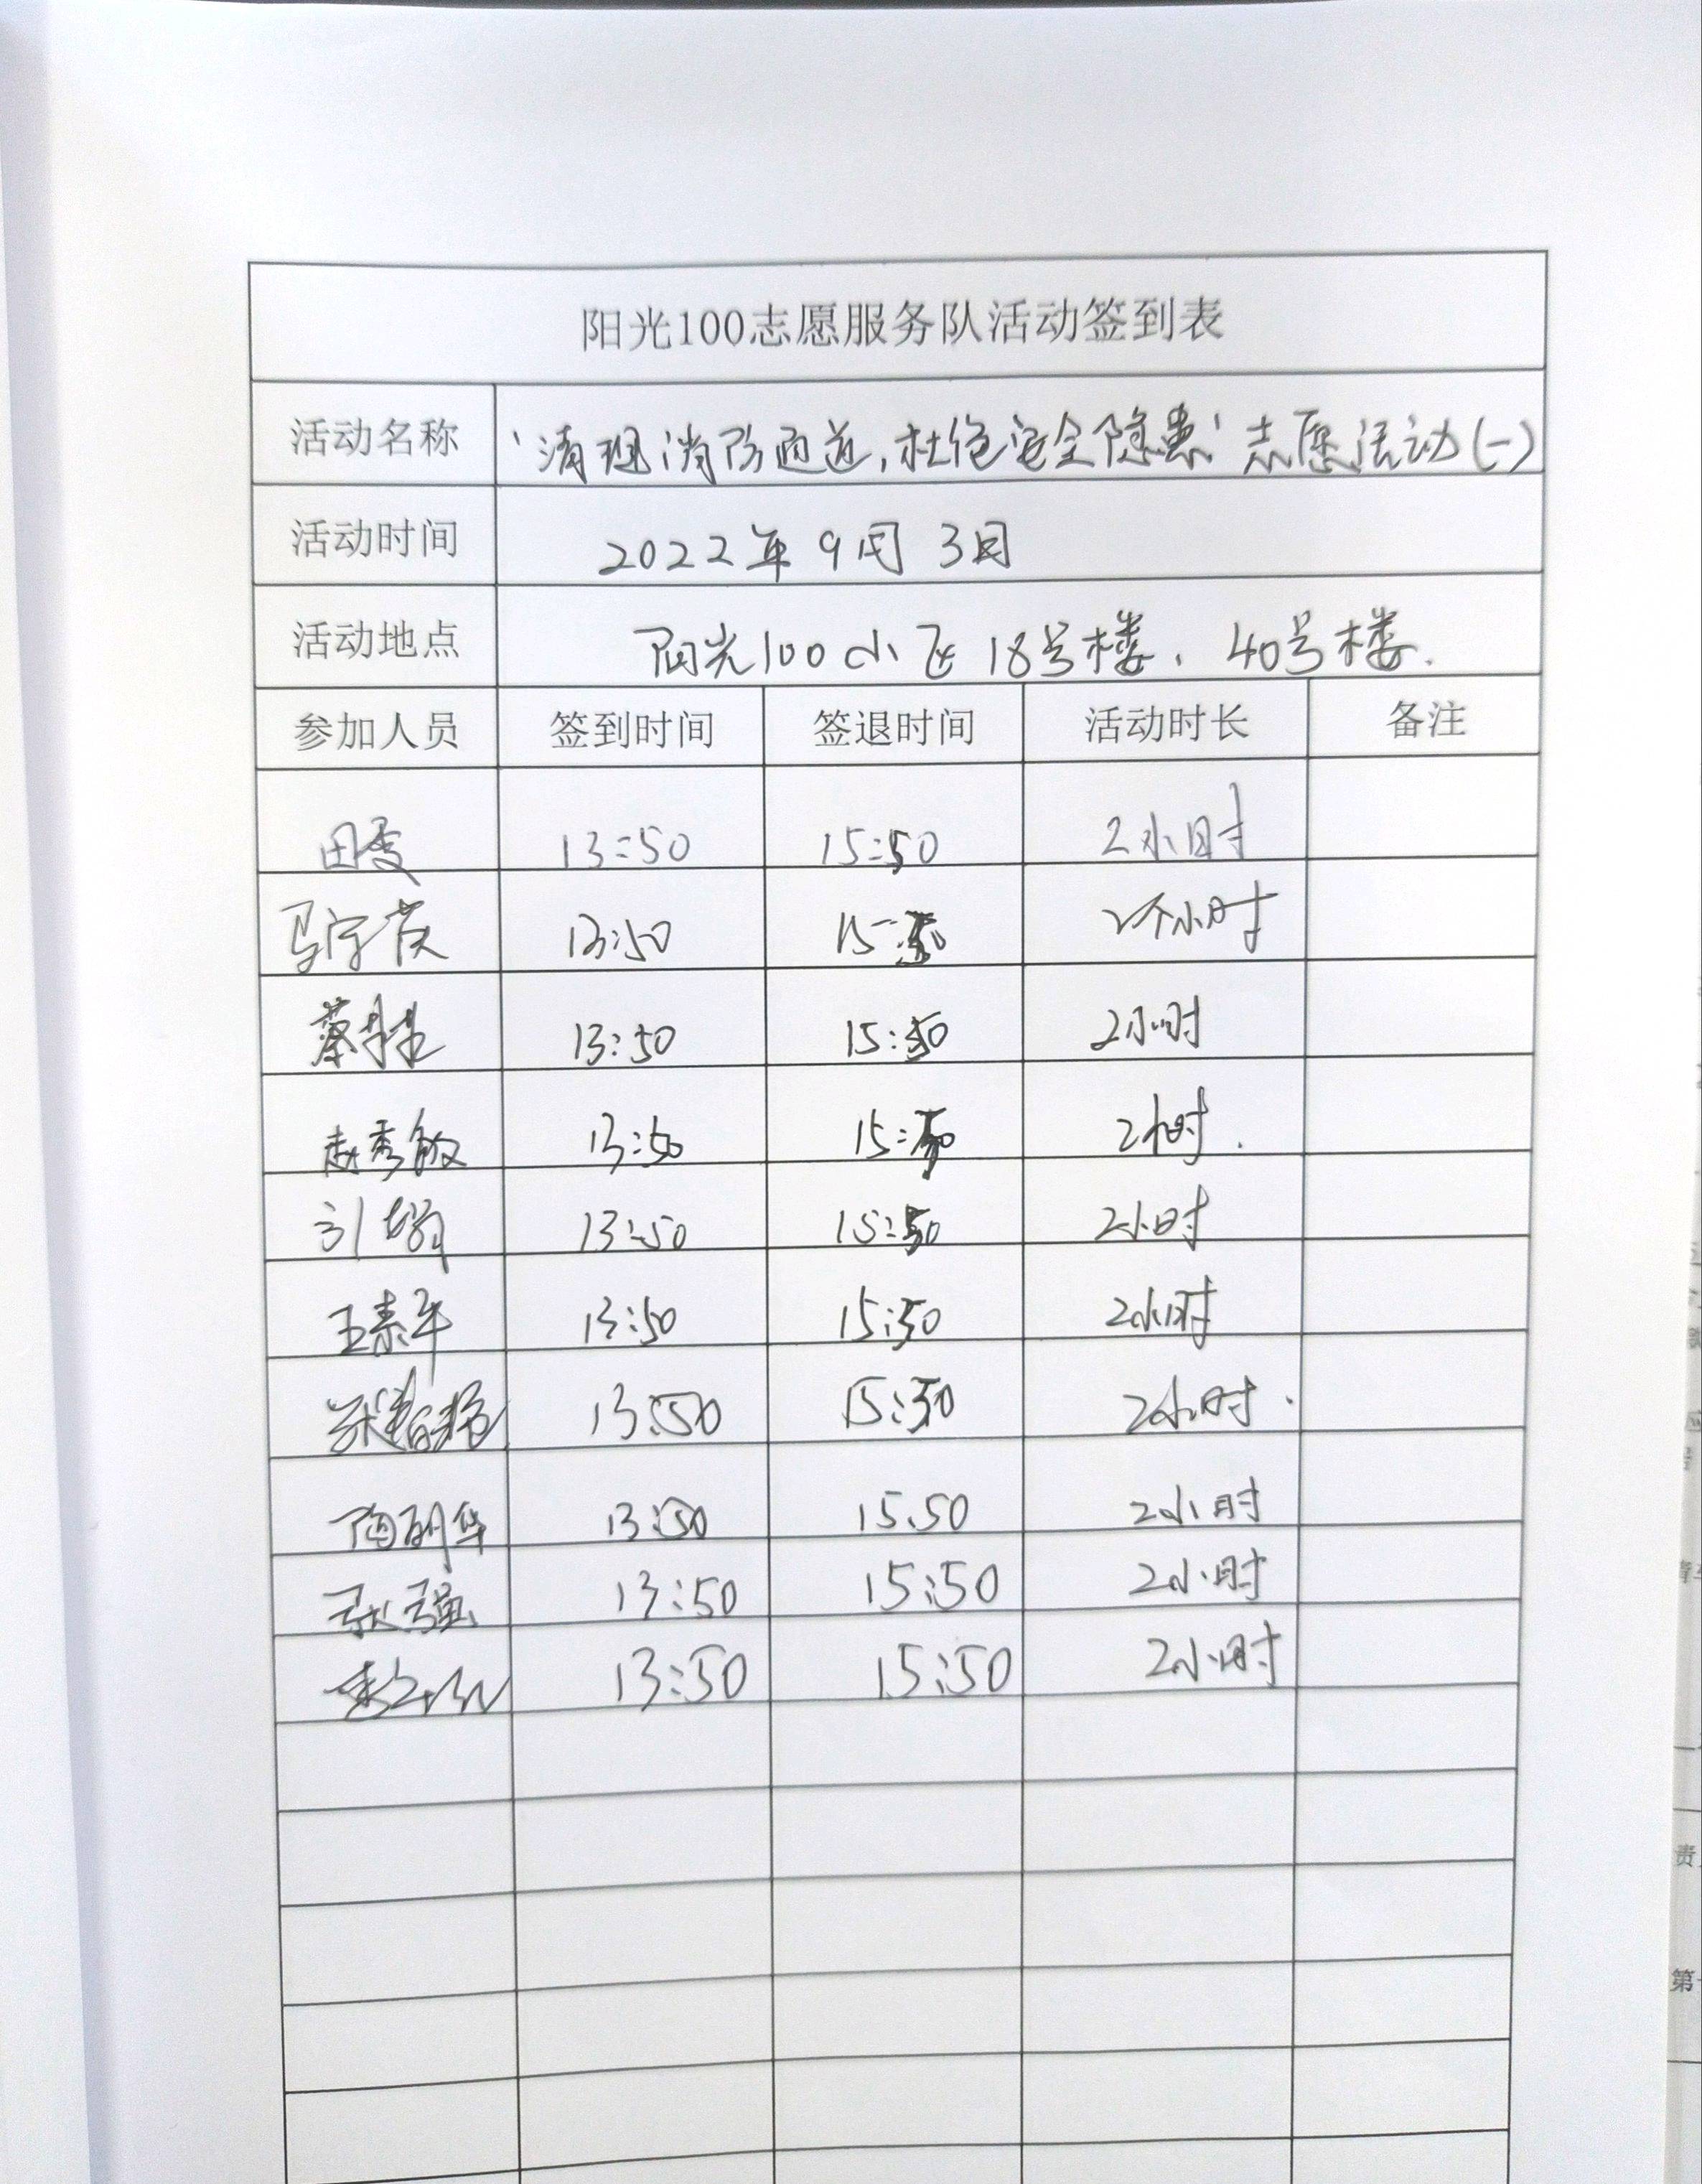 阳光100志愿服务队活动签到表
活动名称 '清理消防通道,杜绝安全隐患' 志愿活动(一)
活动时间 2022年9月3日
活动地点 阳光100小区18号楼、40号楼.
参加人员 签到时间 签退时间 活动时长 备注
田雯 13:50 15:50 2小时
马宇茨 13:50 15:50 2个小时
蔡 13:50 15:50 2小时
赵秀敏 13:50 15:50 2小时.
刘娟 13:50 15:50 2小时
王素平 13:50 15:50 2小时
13:50 15:50 2小时.
陶丽华 13:50 15.50 2小时
强 13:50 15:50 2小时
13:50 15:50 2小时
责
第